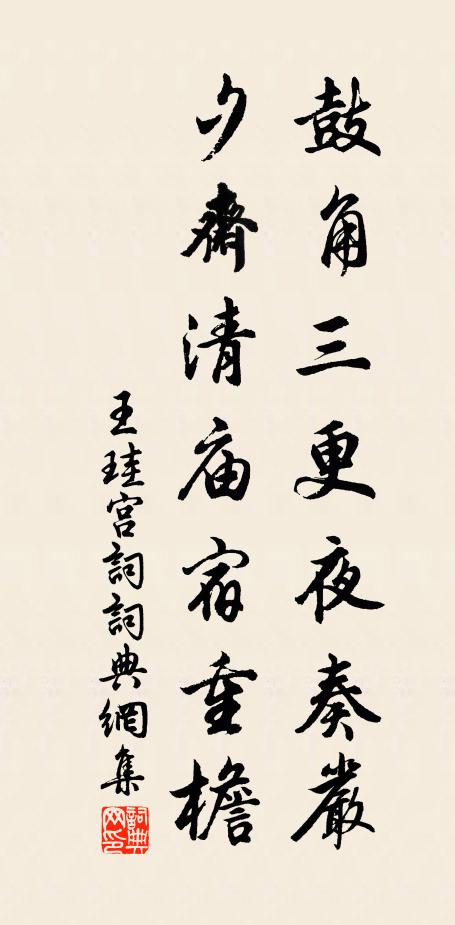 鼓角三更夜奏嚴
夕齋清庙宿重檐
王珪宫詞詞典網集
詞典网印